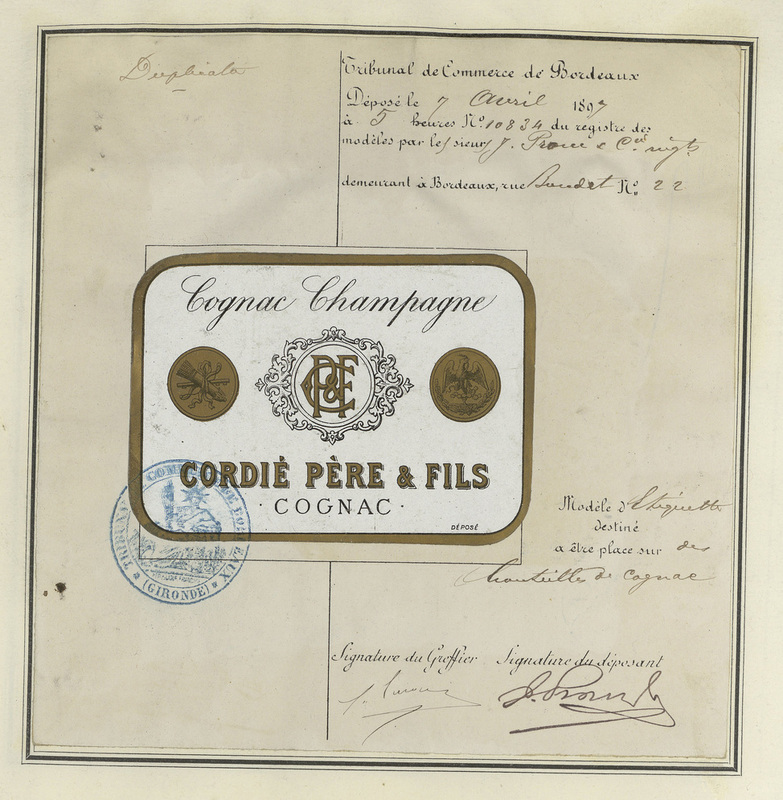 Duplicata
Tribunal de Commerce de Bordeaux
Déposé le 7 Avril 1897
à 5 heures No. 10834 du registre des
modèles par les sieurs J. Prom & Cie
demeurant à Bordeaux, rue Boudet No. 22
Cognac Champagne
CP&F
CORDIÉ PÈRE & FILS
· COGNAC ·
DÉPOSÉ
TRIBUNAL DE COMMERCE DE BORDEAUX
* (GIRONDE) *
Modèle d'Etiquette
destiné
a être place sur des
bouteilles de cognac
Signature du Greffier Signature du déposant